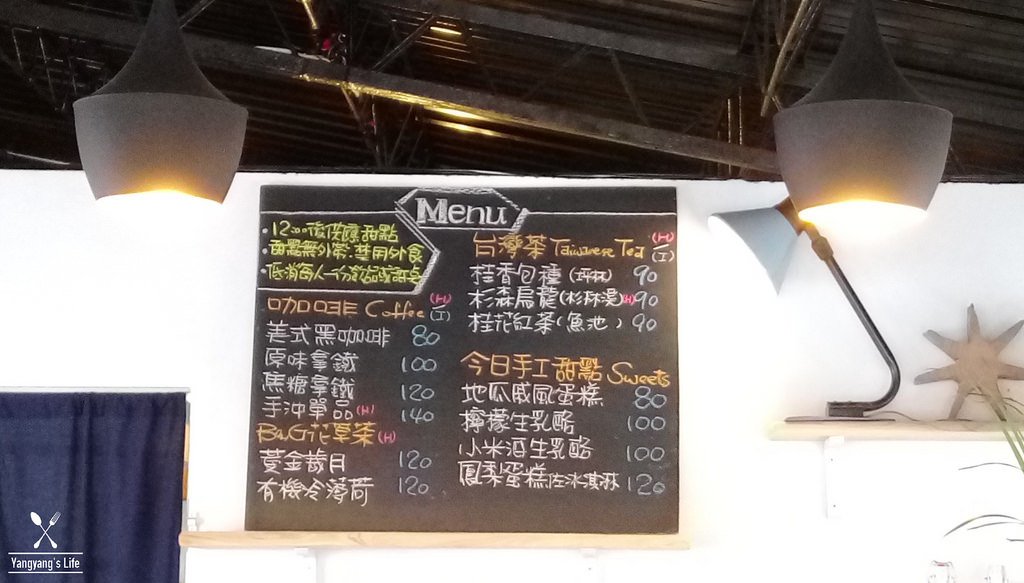 Menu
• 12:00後供應甜點
• 店無外帶.禁用外食
• 低消每人一份飲品或甜點
咖啡 Coffee (H)/(I)
美式黑咖啡 80
原味拿鐵 100
焦糖拿鐵 120
手沖單品(H) 140
B&G花草茶(H)
黃金歲月 120
有機冷薄荷 120
台灣茶 Taiwanese Tea (H)/(I)
桂香包種(坪林) 90
杉森烏龍(杉林溪)(H) 90
桂花紅茶(魚池) 90
今日手工甜點 Sweets
地瓜戚風蛋糕 80
檸檬生乳酪 100
小米酒生乳酪 100
鳳梨蛋糕佐冰淇淋 120
Yangyang's Life